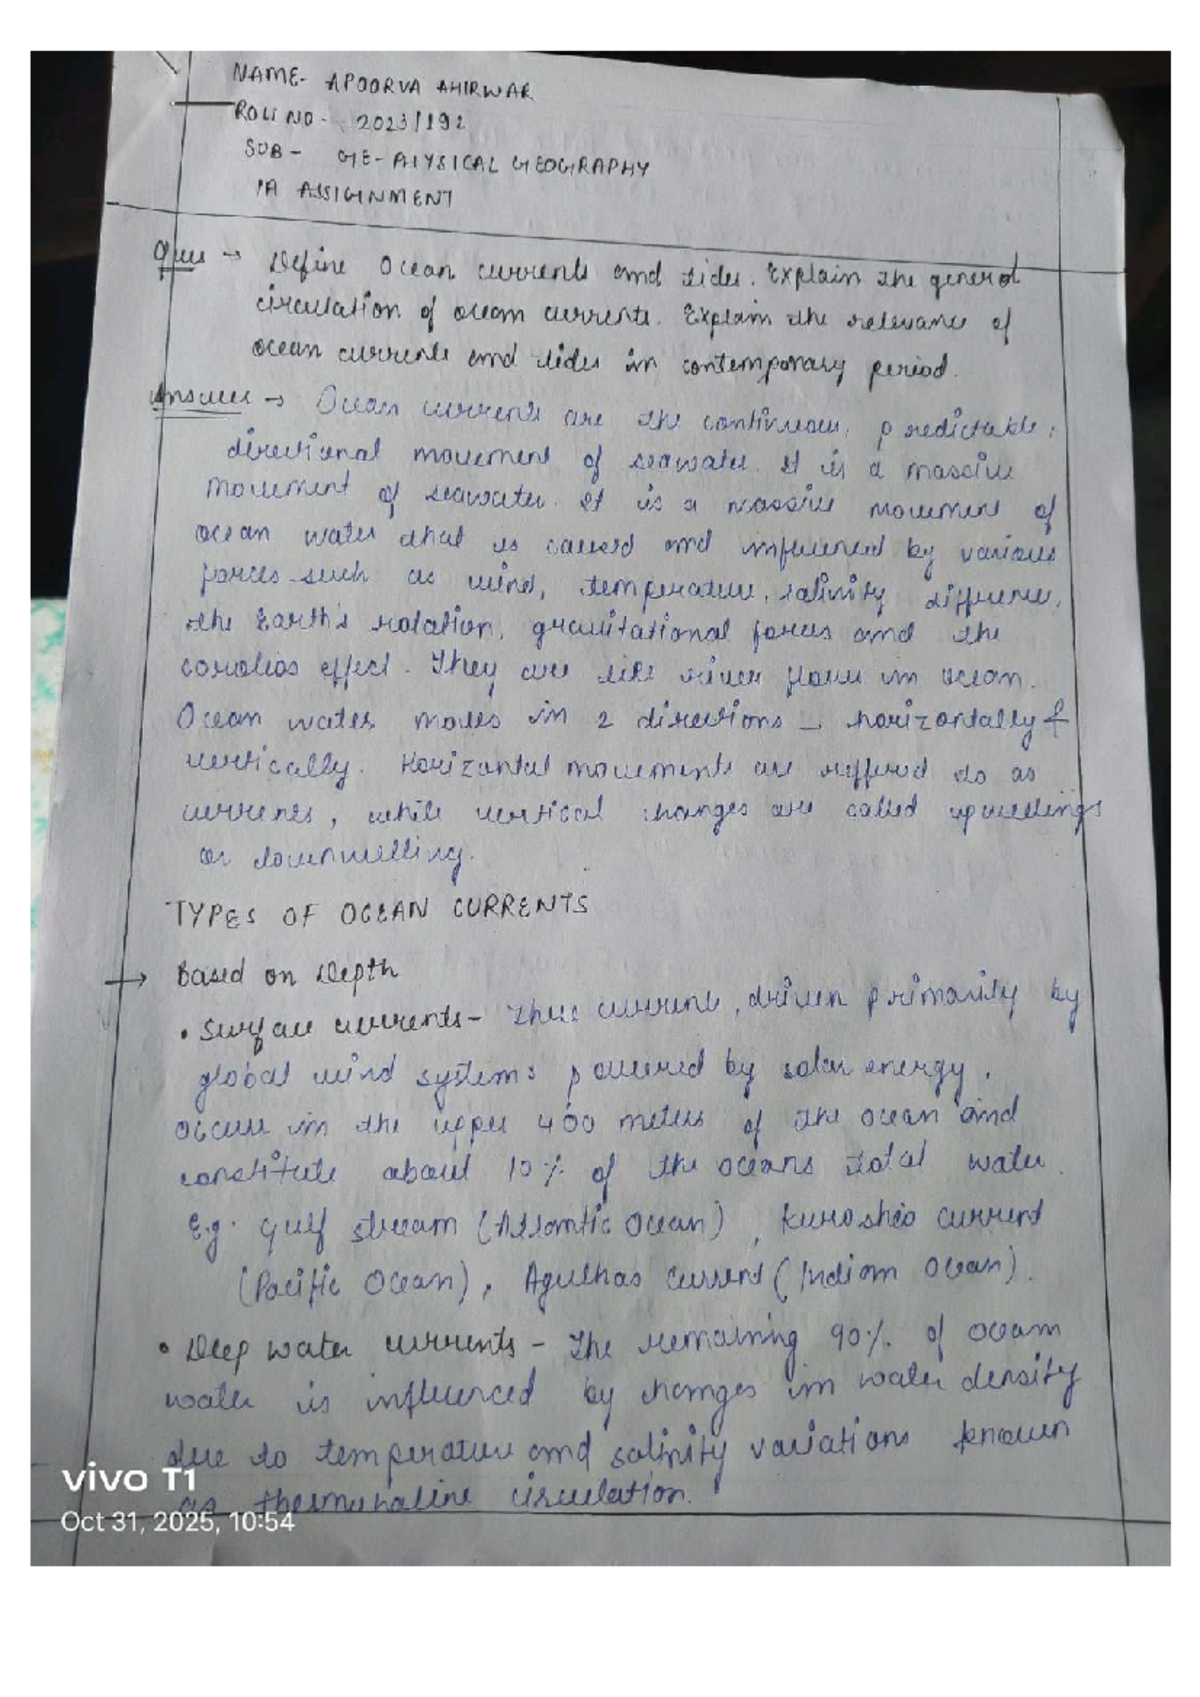 NAME- APOORVA AHIRWAR
ROLL NO- 2023/192
SUB- GE-PHYSICAL GEOGRAPHY
IA ASSIGNMENT
Ques → Define Ocean currents and tides. Explain the general
circulation of ocean currents. Explain the relevance of
ocean currents and tides in contemporary period.
Answer → Ocean currents are the continuous, predictable,
directional movement of seawater. It is a massive
movement of seawater. It is a massive movement of
ocean water that is caused and influenced by various
forces such as wind, temperature, salinity difference,
the Earth's rotation, gravitational forces and the
coriolios effect. They are like river flow in ocean.
Ocean water moves in 2 directions - horizontally &
vertically. Horizontal movements are reffered to as
currents, while vertical changes are called upwellings
or downwelling.
TYPES OF OCEAN CURRENTS
→ Based on Depth
• Surface currents- These current, driven primarily by
global wind systems powered by solar energy,
occur in the upper 400 meters of the ocean and
constitute about 10% of the oceans total water.
E.g. gulf stream (Atlantic Ocean), Kuroshio current
(Pacific Ocean), Agulhas current (Indian Ocean).
• Deep water currents - The remaining 90% of ocean
water is influenced by changes in water density
due to temperature and salinity variations known
as thermohaline circulation.
vivo T1
Oct 31, 2025, 10:54